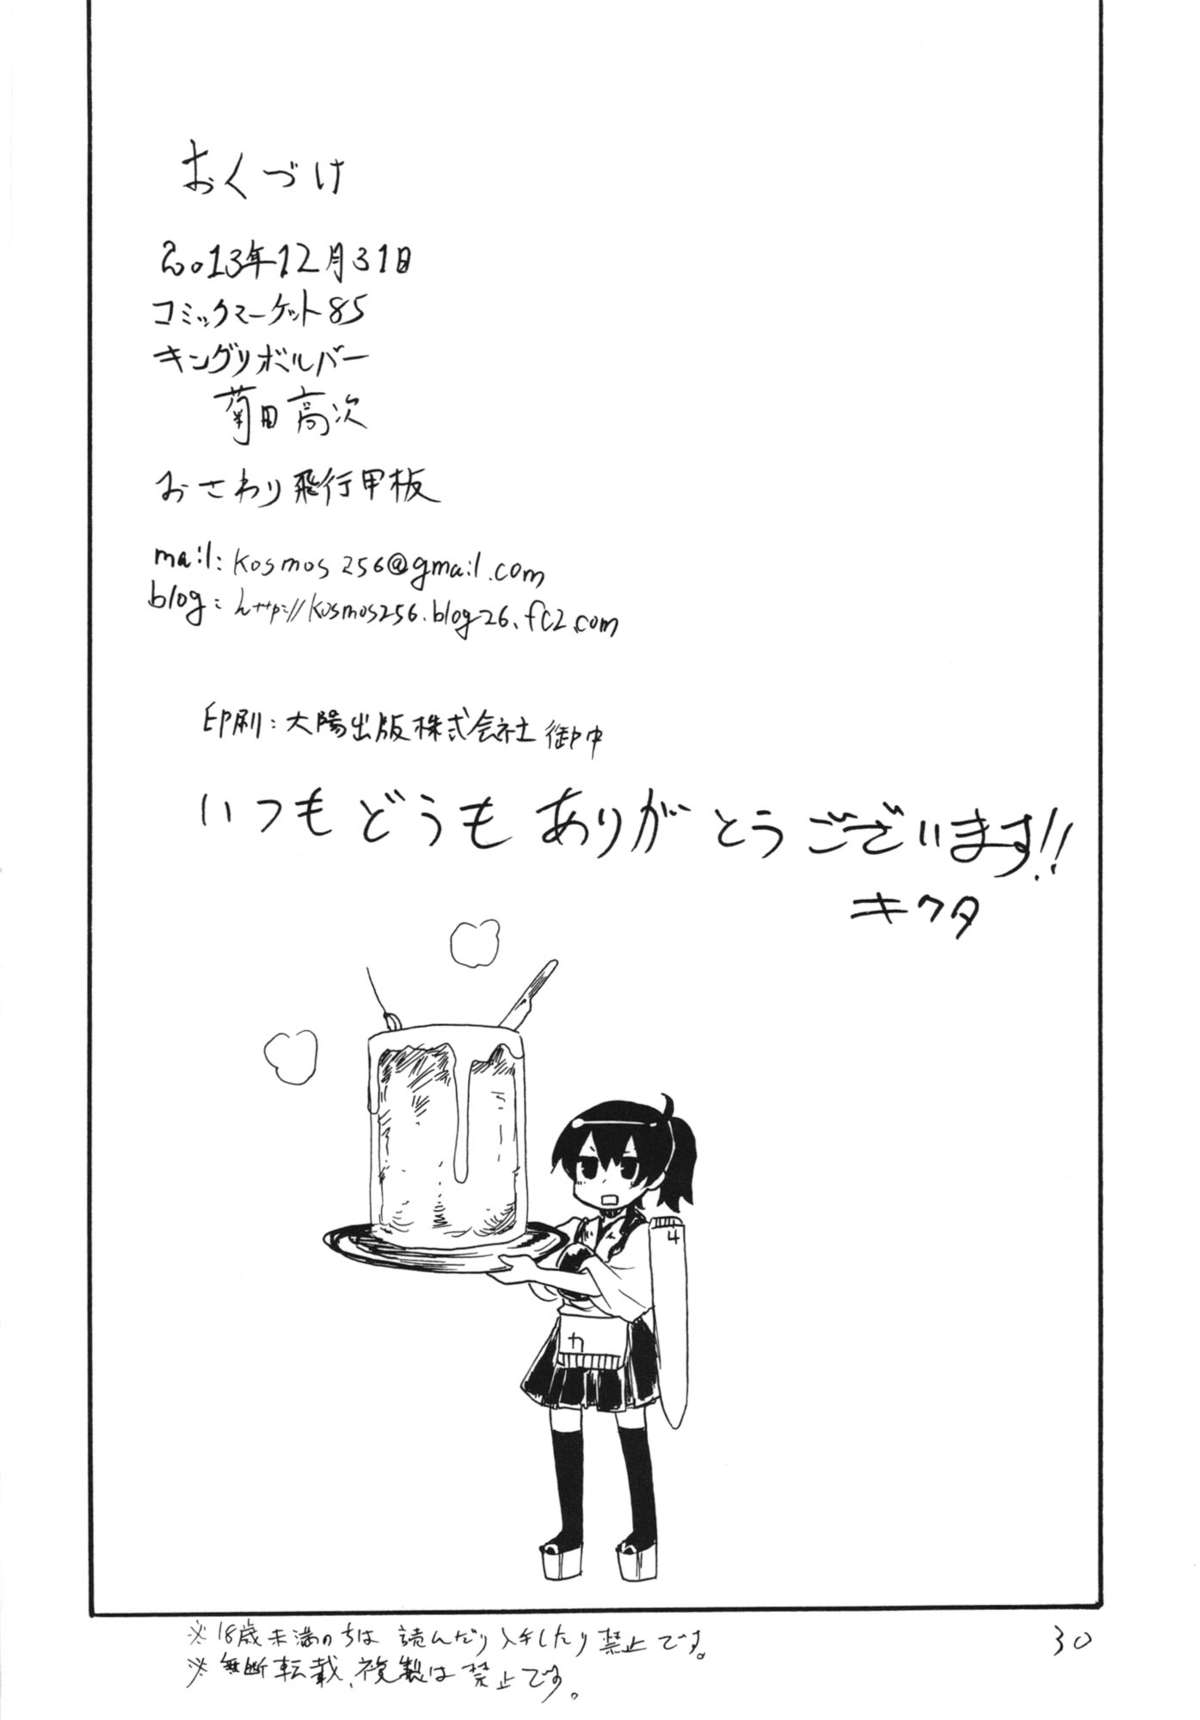 おくづけ
2013年12月31日
コミックマーケット85
キングリボルバー
菊田高次
おさわり飛行甲板
mail: kosmos256@gmail.com
blog: http://kosmos256.blog26.fc2.com
印刷:大陽出版株式会社 御中
いつもどうもありがとうございます!!
キクタ
4
カ
※18歳未満のちは読んだり入手したり禁止です。
※無断転載、複製は禁止です。
30